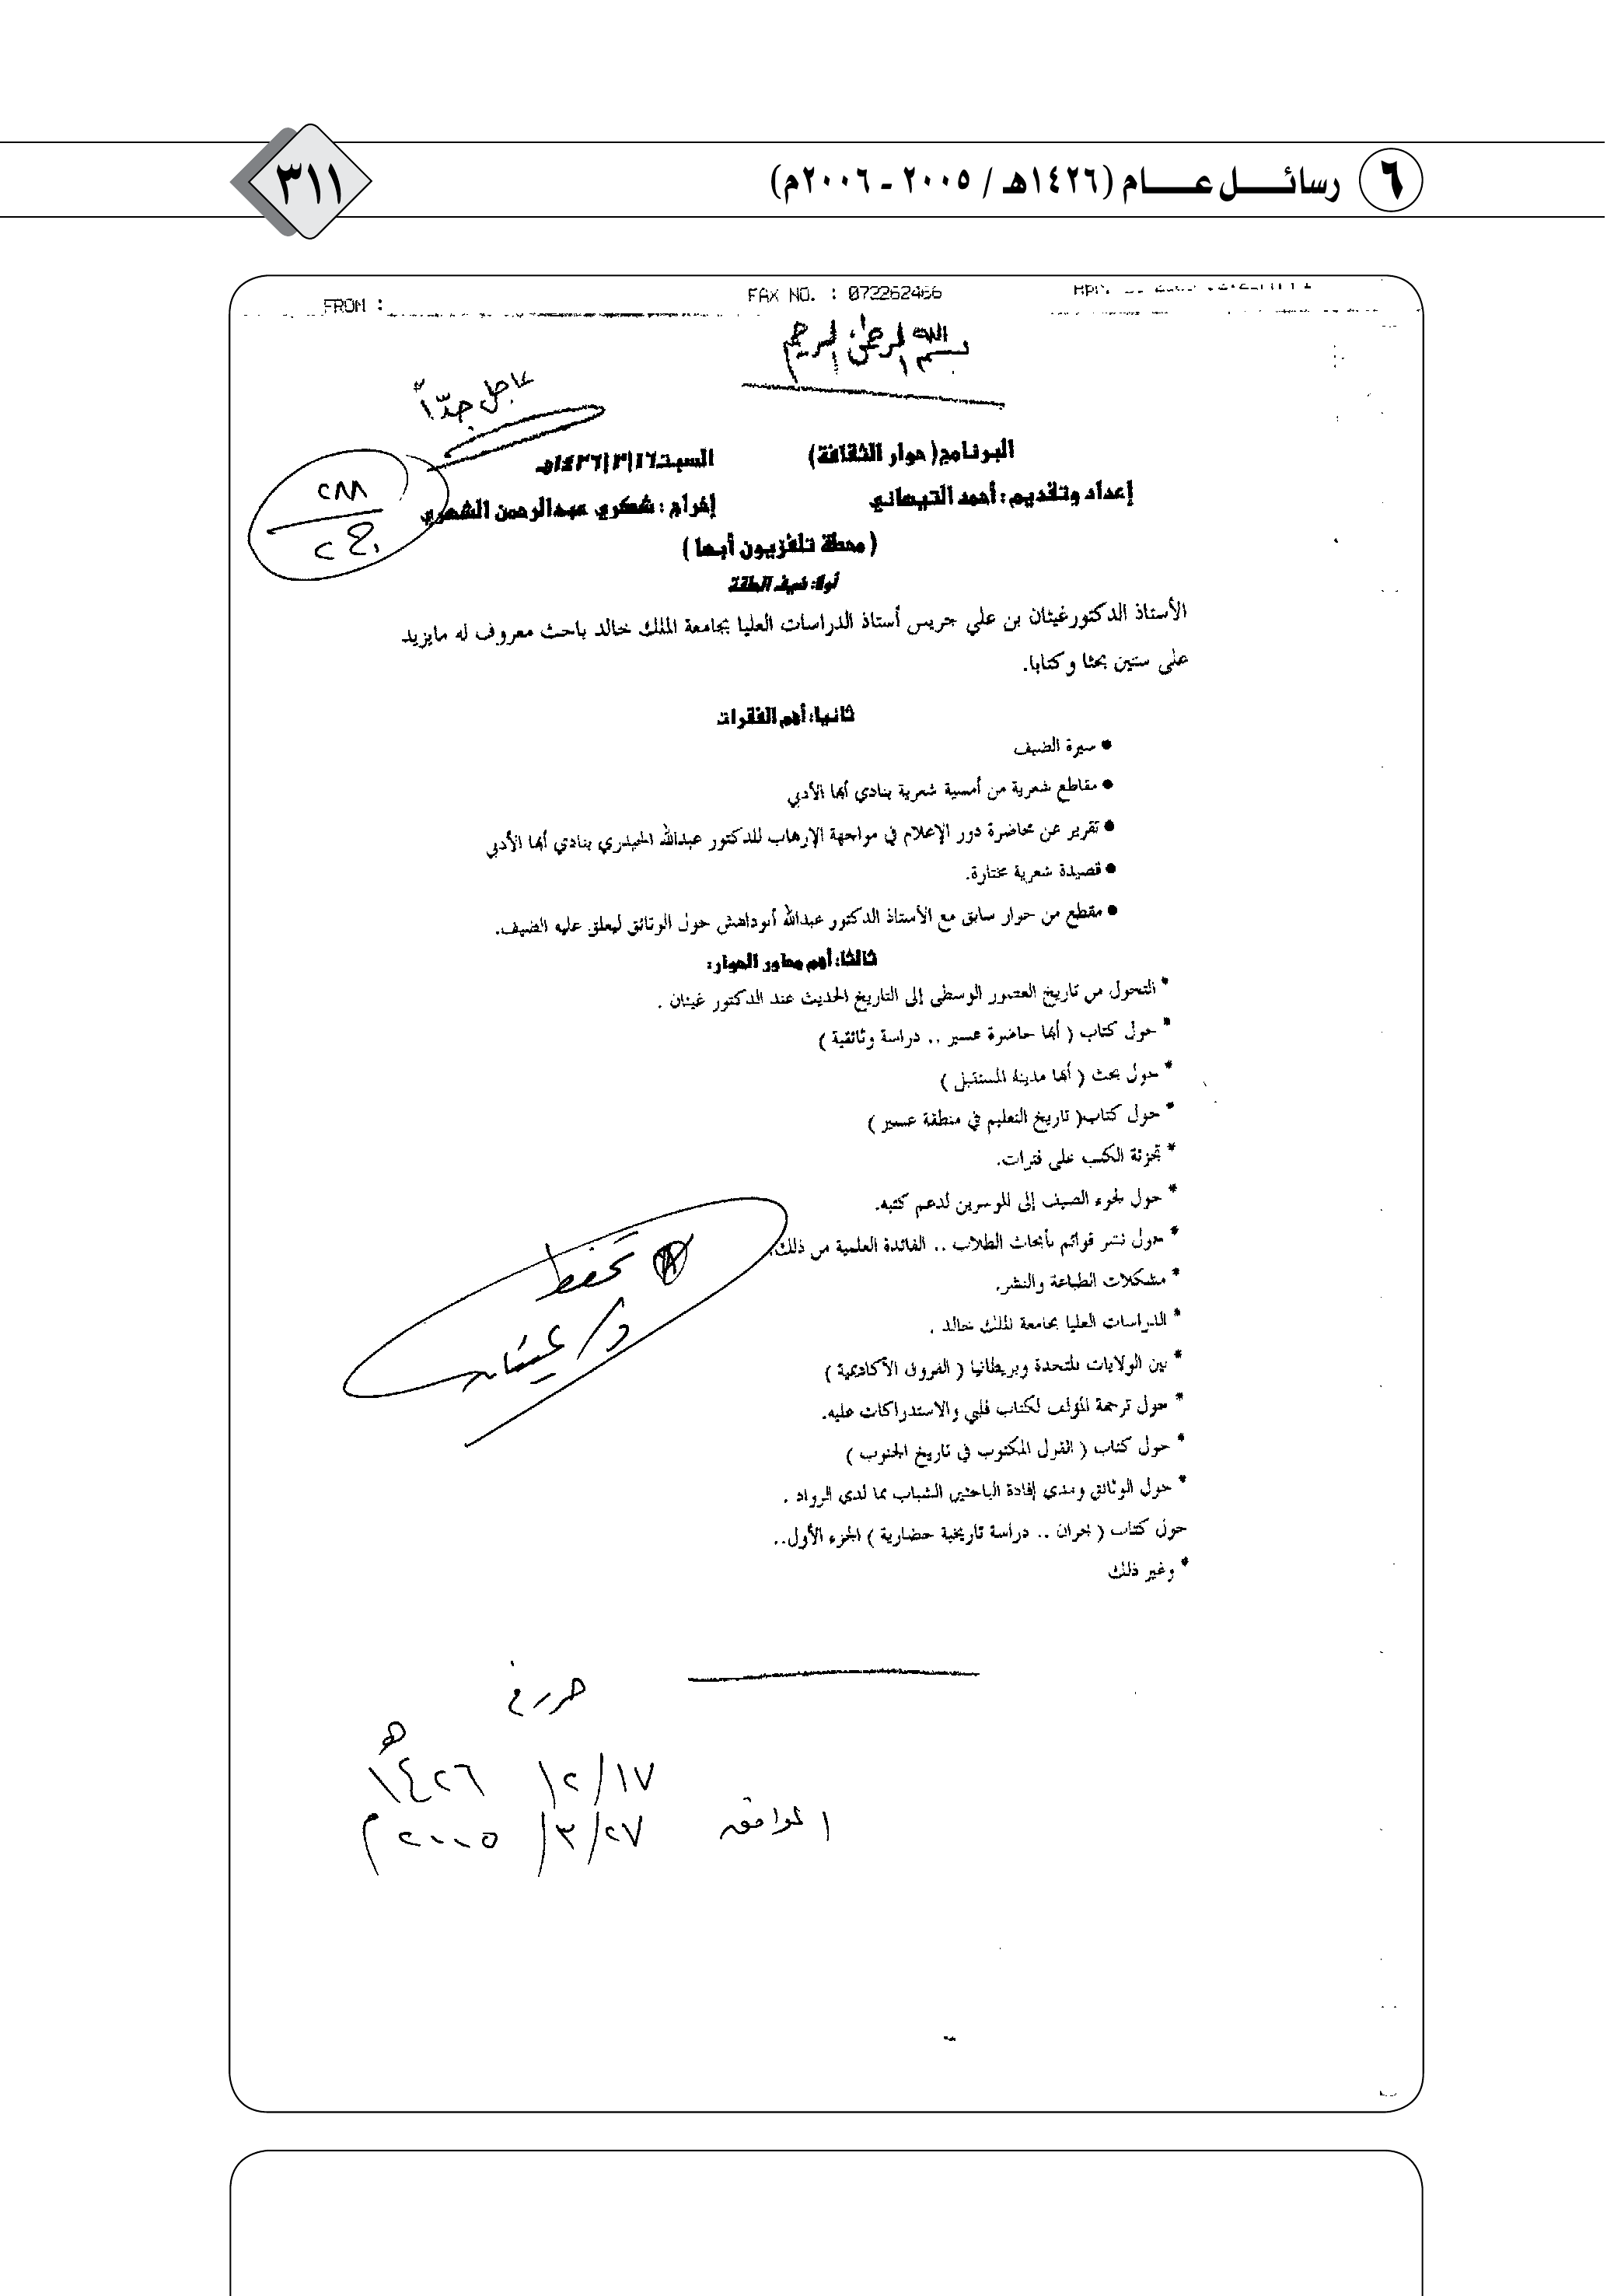 ٦ رسائــل عــام (١٤٢٦هـ / ٢٠٠٥ - ٢٠٠٦م)
٣١١
FROM :
FAX NO. : 072262466
بسم الله الرحمن الرحيم
عاجل جداً
البرنامج( حوار الثقافة) السبت١٦/٣/١٤٢٦هـ
إعداد وتقديم : أحمد التيهاني إخراج : شكري عبدالرحمن الشهري
٢٨٨
( محطة تلفزيون أبها )
أولا: ضيف الحلقة
الأستاذ الدكتورغيثان بن علي جريس أستاذ الدراسات العليا بجامعة الملك خالد باحث معروف له مايزيد
على ستين بحثا وكتابا.
ثانيا: أهم الفقرات
● سيرة الضيف
● مقاطع شعرية من أمسية شعرية بنادي أبها الأدبي
● تقرير عن محاضرة دور الإعلام في مواجهة الإرهاب للدكتور عبدالله الحيدري بنادي أبها الأدبي
● قصيدة شعرية مختارة.
● مقطع من حوار سابق مع الأستاذ الدكتور عبدالله أبوداهش حول الوثائق ليعلق عليه الضيف.
ثالثا: أهم محاور الحوار:
* التحول من تاريخ العصور الوسطى إلى التاريخ الحديث عند الدكتور غيثان .
* حول كتاب ( أبها حاضرة عسير .. دراسة وثائقية )
* حول بحث ( أبها مدينة المستقبل )
* حول كتاب( تاريخ التعليم في منطقة عسير )
* تجزئة الكتب على فترات.
* حول لجوء الضيف إلى الموسرين لدعم كتبه.
* حول نشر قوائم بأبحاث الطلاب .. الفائدة العلمية من ذلك.
* مشكلات الطباعة والنشر.
* الدراسات العليا بجامعة الملك خالد .
* بين الولايات المتحدة وبريطانيا ( الفروق الأكاديمية )
* حول ترجمة المؤلف لكتاب فلبي والاستدراكات عليه.
* حول كتاب ( القول المكتوب في تاريخ الجنوب )
* حول الوثائق ومدى إفادة الباحثين الشباب مما لدى الرواد .
حول كتاب ( نجران .. دراسة تاريخية حضارية ) الجزء الأول..
* وغير ذلك
تحفظ
د/غيثان
حرر في
١٧/٢/ ١٤٢٦هـ
الموافق ٢٧/٣/ ٢٠٠٥م